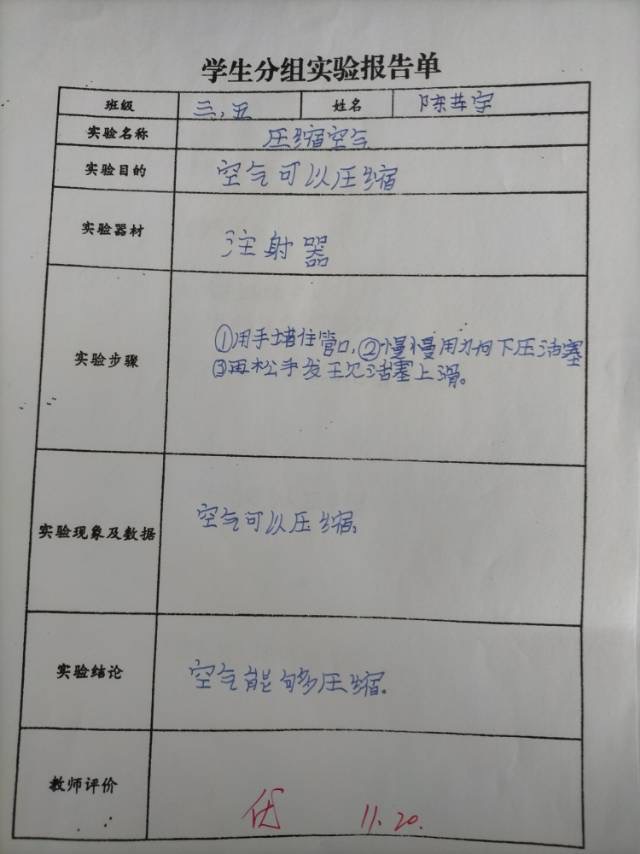 学生分组实验报告单
班级 三、五 姓名 陈其宇
实验名称 压缩空气
实验目的 空气可以压缩
实验器材 注射器
实验步骤 ①用手堵住管口,②慢慢用力向下压活塞
③再松手发王见活塞上滑。
实验现象及数据 空气可以压缩。
实验结论 空气能够压缩.
教师评价 优 11.20.